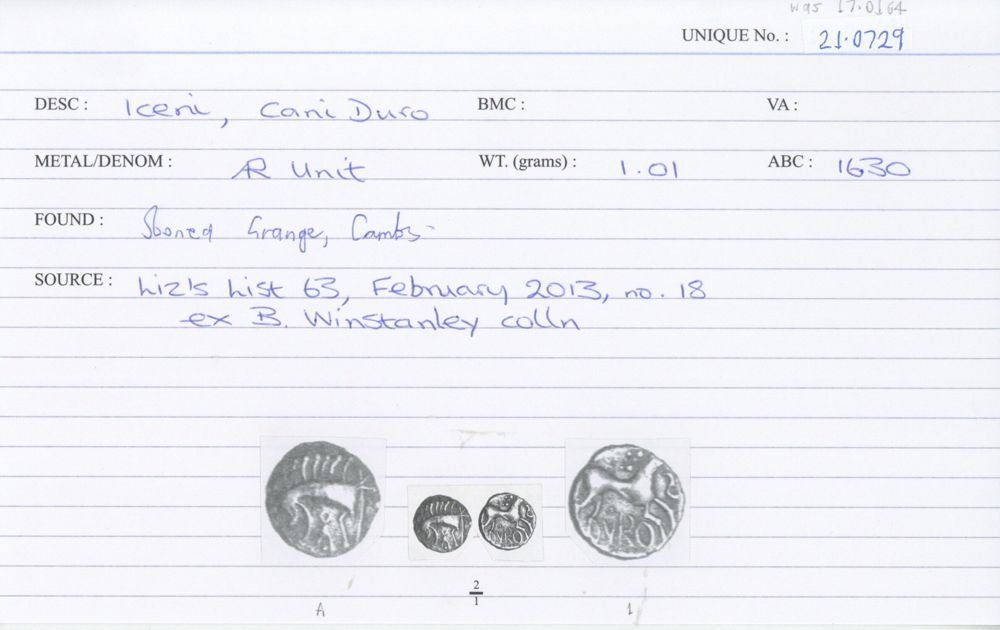 was 17.0164
UNIQUE No. : 21.0729
DESC : Iceni, Cani Duro BMC : VA :
METAL/DENOM : AR Unit WT. (grams) : 1.01 ABC : 1630
FOUND : Grange, Cambs.
SOURCE : Liz's List 63, February 2013, no. 18
ex B. Winstanley colln
2
1
A 1